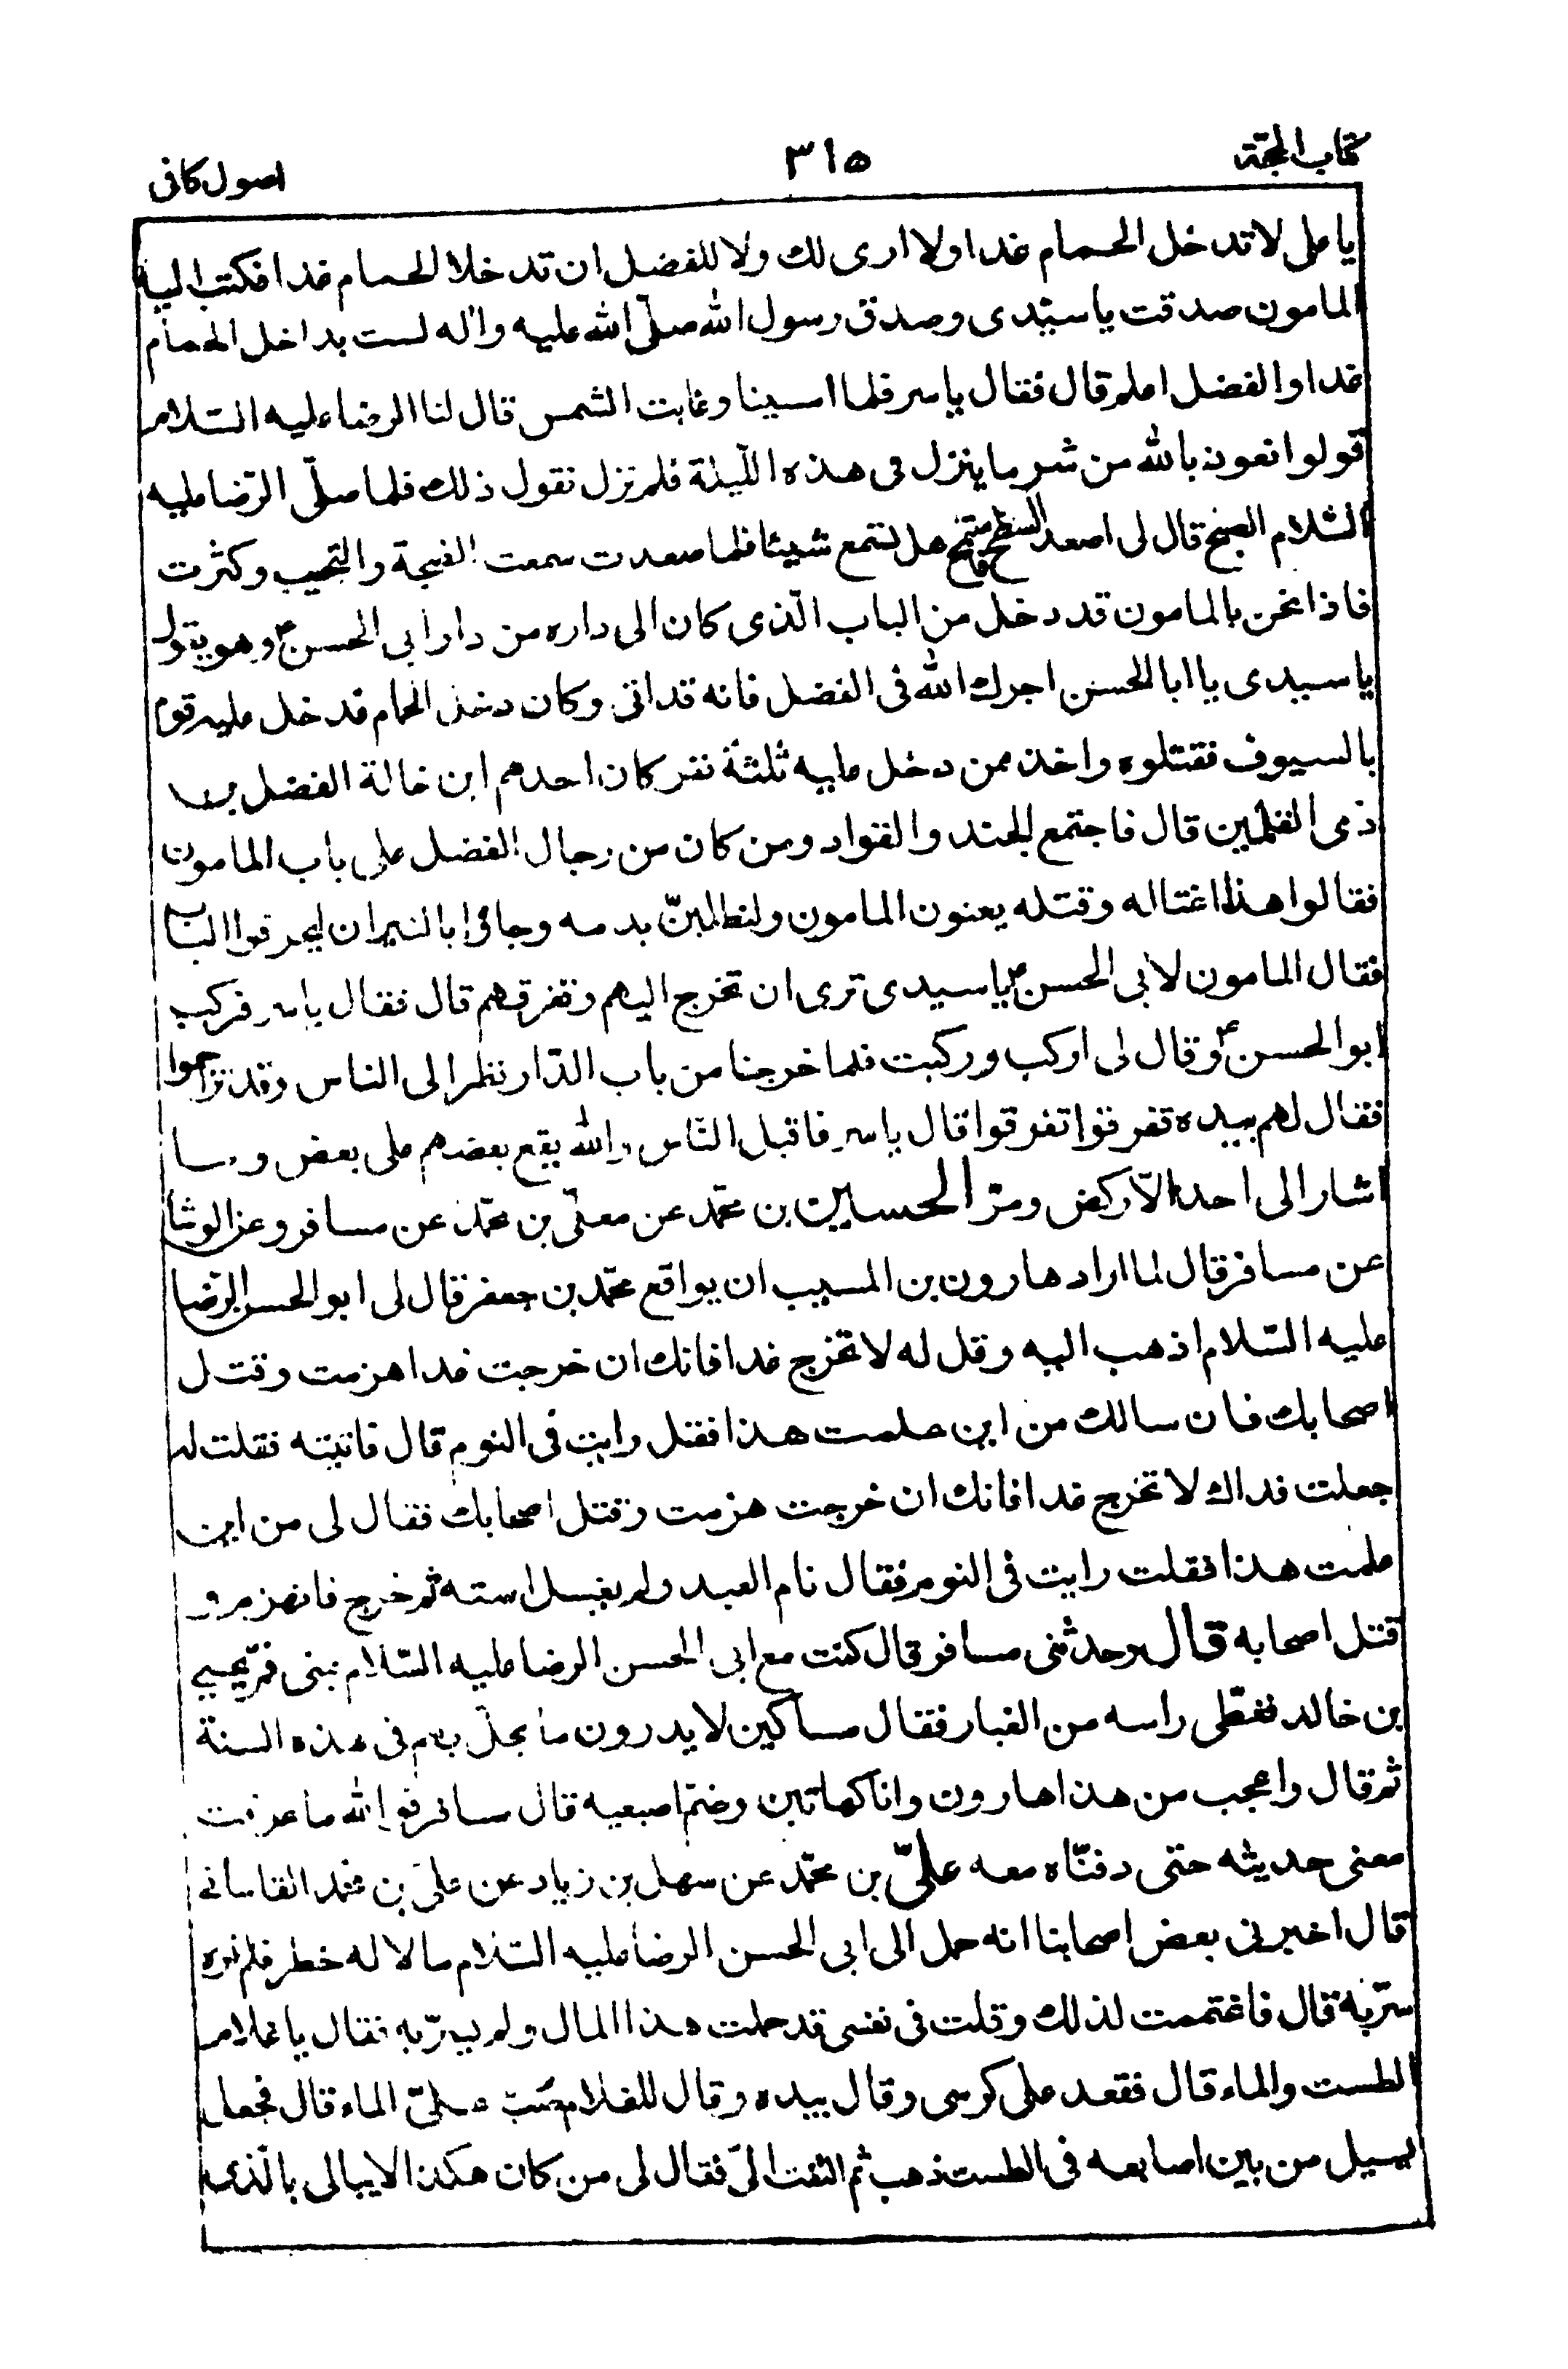 كتاب الحجة
٣١٥
اصول كافى
يا على لا تدخل الحمام غدا ولا ارى لك ولا للفضل ان تدخلا الحمام غدا فكتب اليه
المامون صدقت يا سيّدى وصدق رسول الله صلّى الله عليه واله لست بداخل الحمام
غدا والفضل اعلم قال فقال ياسر فلما امسينا وغابت الشمس قال لنا الرضا عليه السّلام
قولوا نعوذ بالله من شر ما ينزل فى هذه اللّيلة فلم نزل نقول ذلك فلما صلّى الرّضا عليه
السّلام الصبح قال لى اصعد السطح فاستمع هل تسمع شيئا فلما صعدت سمعت الضجة والنحيب وكثرت
فاذا نحن بالمامون قد دخل من الباب الّذى كان الى داره من دار ابى الحسن ع وهو يقول
يا سيدى يا ابا الحسن اجرك الله فى الفضل فانه قد اتى وكان دخل الحمام فدخل عليه قوم
بالسيوف فقتلوه واخذ ممن دخل عليه ثلثة نفر كان احدهم ابن خالة الفضل بن
ذى القلمين قال فاجتمع الجند والقواد ومن كان من رجال الفضل على باب المامون
فقالوا هذا اغتاله وقتله يعنون المامون ولنطلبنّ بدمه وجاؤا بالنيران ليحرقوا الباب
فقال المامون لابى الحسن ع يا سيدى ترى ان تخرج اليهم وتفرقهم قال فقال ياسر فركب
ابو الحسن ع وقال لى اركب وركبت فلما خرجنا من باب الدّار نظر الى الناس وقد تزاحموا
فقال لهم بيده تفرقوا تفرقوا قال ياسر فاقبل النّاس والله يقع بعضهم على بعض وما
اشار الى احد الّا ركض ومرّ الحسين بن محمّد عن معلّى بن محمّد عن مسافر وعن الوشا
عن مسافر قال لما اراد هارون بن المسيب ان يواقع محمّد بن جعفر قال لى ابو الحسن الرّضا
عليه السّلام اذهب اليه وقل له لا تخرج غدا فانك ان خرجت غدا هزمت وقتل
اصحابك فان سالك من اين علمت هذا فقل رايت فى النوم قال فاتيته فقلت له
جعلت فداك لا تخرج غدا فانك ان خرجت هزمت وقتل اصحابك فقال لى من اين
علمت هذا فقلت رايت فى النوم فقال نام العبد ولم يغسل استه ثم خرج فانهزم و
قتل اصحابه قال وحدثنى مسافر قال كنت مع ابى الحسن الرضا عليه السّلام بمنى فمرّ يحيى
بن خالد فغطّى راسه من الغبار فقال مساكين لا يدرون ما يحلّ بهم فى هذه السنة
ثم قال واعجب من هذا هارون وانا كهاتين وضمّ اصبعيه قال مسافر فوالله ما عرفت
معنى حديثه حتى دفنّاه معه علىّ بن محمّد عن سهل بن زياد عن علىّ بن محمّد القاسانى
قال اخبرنى بعض اصحابنا انه حمل الى ابى الحسن الرضا عليه السّلام مالا له خطر فلم اره
سرّ به قال فاغتممت لذلك وقلت فى نفسى قد حملت هذا المال ولم يسرّ به فقال يا غلام
الطست والماء قال فقعد على كرسى وقال بيده وقال للغلام صبّ علىّ الماء قال فجعل
يسيل من بين اصابعه فى الطست ذهب ثم التفت الىّ فقال لى من كان هكذا لا يبالى بالّذى